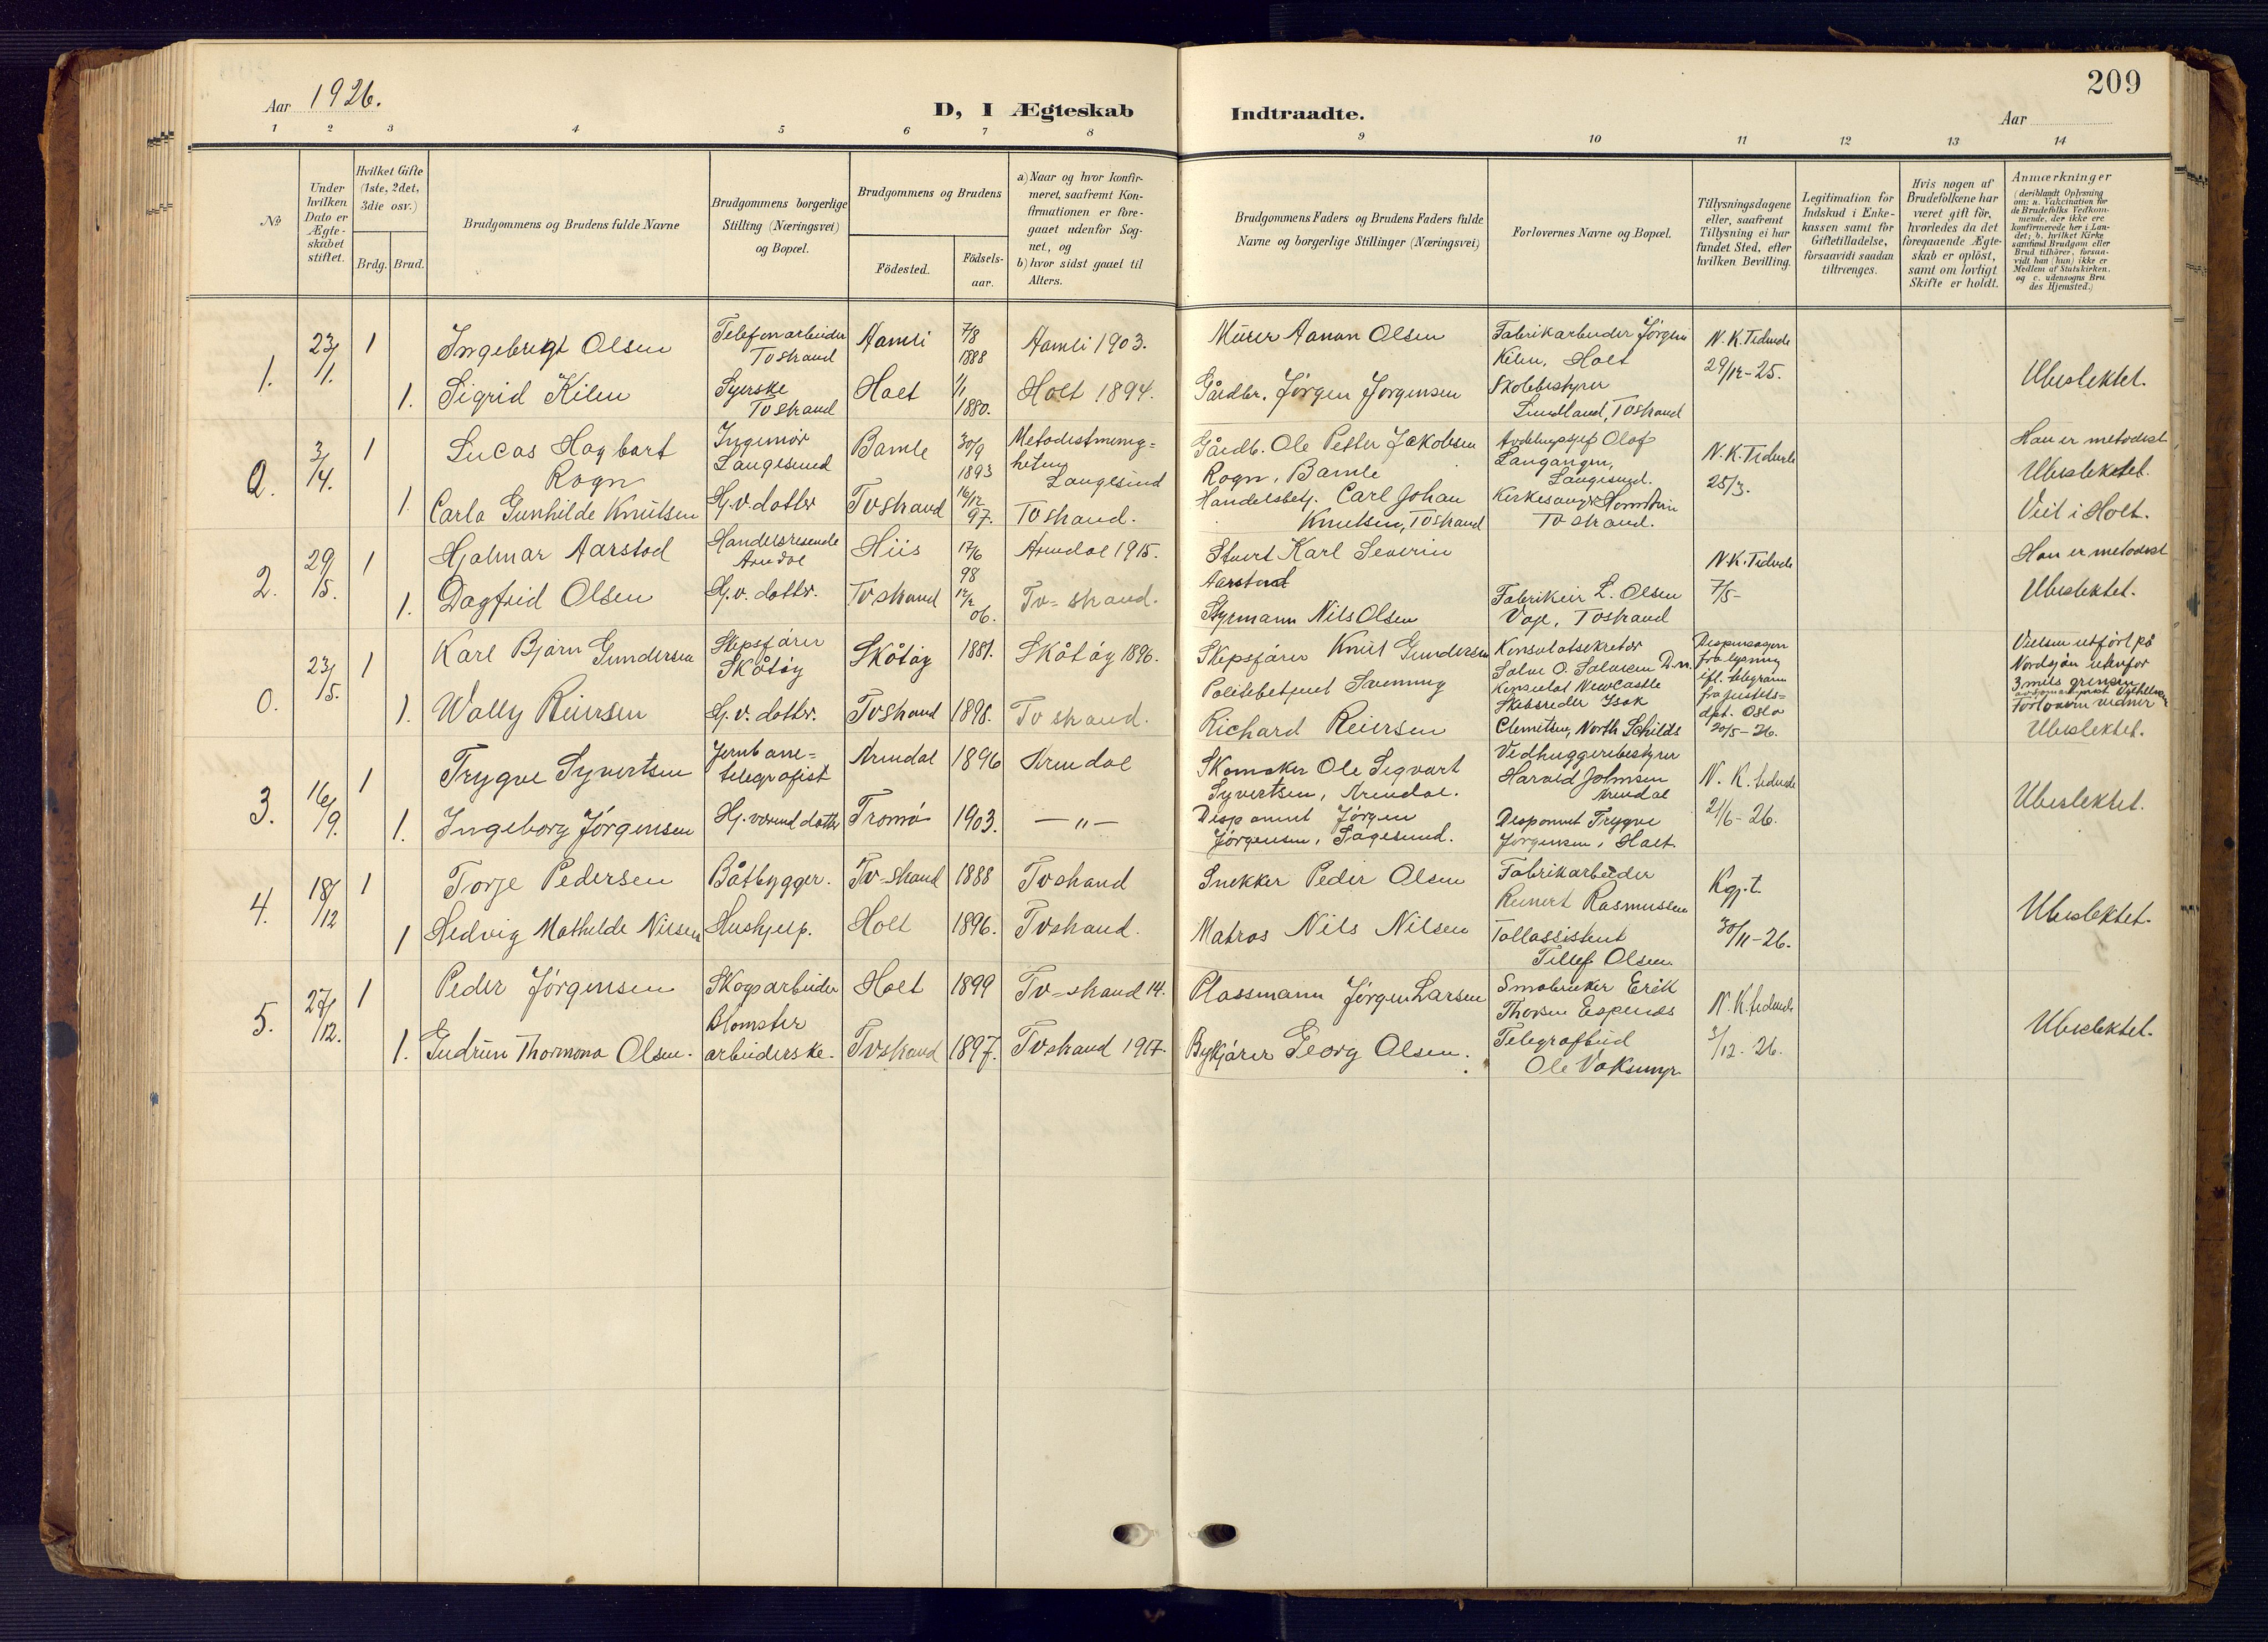 209
Aar 1926.
D, I Ægteskab Indtraadte.
Aar
1 2 3 4 5 6 7 8 9 10 11 12 13 14
No
Under hvilken Dato er Ægteskabet stiftet.
Hvilket Gifte (1ste, 2det, 3die osv.)
Brdg. Brud.
Brudgommens og Brudens fulde Navne
Brudgommens borgerlige Stilling (Næringsvei) og Bopæl.
Brudgommens og Brudens
Födested.
Födsels-aar.
a) Naar og hvor konfirmeret, saafremt Konfirmationen er foregaaet udenfor Sognet, og
b) hvor sidst gaaet til Alters.
Brudgommens Faders og Brudens Faders fulde Navne og borgerlige Stillinger (Næringsvei)
Forlovernes Navne og Bopæl.
Tillysningsdagene eller, saafremt Tillysning ei har fundet Sted, efter hvilken Bevilling.
Legitimation for Indskud i Enkekassen samt for Giftetilladelse, forsaavidt saadan tiltrænges.
Hvis nogen af Brudefolkene har været gift för, hvorledes da det foregaaende Ægteskab er oplöst, samt om lovligt Skifte er holdt.
Anmærkninger
(deriblandt Oplysning om: a. Vakcination for de Brudefolks Vedkommende, der ikke ere konfirmerede her i Landet; b. hvilket Kirkesamfund Brudgom eller Brud tilhörer, forsaavidt han (hun) ikke er Medlem af Statskirken. og c. udensogns Brudes Hjemsted.)
1. 23/1. 1 Ingebrigt Olsen Telefonarbeider Tvestrand Aamli 7/8 1888 Aamli 1903. Murer Aanon Olsen Fabrikarbeider Jörgen Kilen, Holt N.K. Tidende 29/12-25.
1. Sigrid Kilen Syerske Tvestrand Holt 1/1 1880. Holt 1894. Gårdbr. Jörgen Jörgensen Skolebestyrer Sundland, Tvestrand Ubeslektet.
2. 3/4. 1 Lucas Hagbart Rogn Ingeniör Langesund Bamle 30/9 1893 Metodistmenigheten Langesund Gårdb. Ole Petter Jakobsen Rogn, Bamle Olaf Langangen, Langesund. N.K. Tidende 25/3. Han er metodist
1. Carla Gunhilde Knutsen Hj.v. datter Tvestrand 16/12 97. Tvestrand. Handelsbetj. Carl Johan Knutsen, Tvestrand Kirkesanger Tvestrand. Ubeslektet. Viet i Holt.
2. 29/5. 1 Hjalmar Aarstad Handelsreisende Arendal Hiis 17/6 98 Arendal 1915. Stuert Karl Severin Aarstad N.K. Tidende 7/5- Han er metodist
1. Dagfrid Olsen Hj.v. datter. Tvestrand 12/2 06. Tvestrand. Styrmann Nils Olsen Fabrikeier L. Olsen Vaje, Tvestrand Ubeslektet.
0. 23/5. 1 Karl Björn Gundersen Skipsförer Skåtöy Skåtöy 1881. Skåtöy 1896. Skipsförer Knut Gundersen Konsulatsekretær Salve O. Salvesen D.n. Konsulat NewCastle Dispensasjon fra lysning ifl. telegram fra justits-dpt. Oslo 20/5-26. Vielsen utfört på Nordsjön utenfor 3 mils grensen
1. Wally Reiersen Hj.v. datter. Tvestrand 1898. Tvestrand. Politibetjent Svenning Richard Reiersen Skibsreder Isak Clemitsen, North Schilds Forloverne vidner Ubeslektet.
3. 16/9. 1 Trygve Syvertsen Jernbane-telegrafist Arendal 1896 Arendal Skomaker Ole Sigvart Syvertsen, Arendal. Vedhuggeribestyrer Harald Johnsen Arendal N.K. tidende 21/6-26.
1. Ingeborg Jörgensen Hj. værend datter Tromö 1903. —"— Disponent Jörgen Jörgensen, Sagesund. Disponent Trygve Jörgensen, Holt. Ubeslektet.
4. 18/12 1 Torje Pedersen Båtbygger. Tvestrand 1888 Tvestrand Snekker Peder Olsen Fabrikarbeider Reinert Rasmussen Kgj.t. 30/11-26.
1 Hedvig Mathilde Nilsen Hushjelp. Holt 1896. Tvestrand. Matros Nils Nilsen Tollassistent Tellef Olsen. Ubeslektet.
5. 27/12. 1 Peder Jörgensen Skogsarbeider Holt 1899 Tvestrand 14. Plassmann Jörgen Larsen Småbruker Erik Thorsen Espenes N.K. tidende 3/12. 26.
1. Gudrun Thormona Olsen. Blomsterarbeiderske. Tvestrand 1897. Tvestrand 1917. Bykjörer Georg Olsen. Telegrafbud Ole Vaksmyr Ubeslektet.